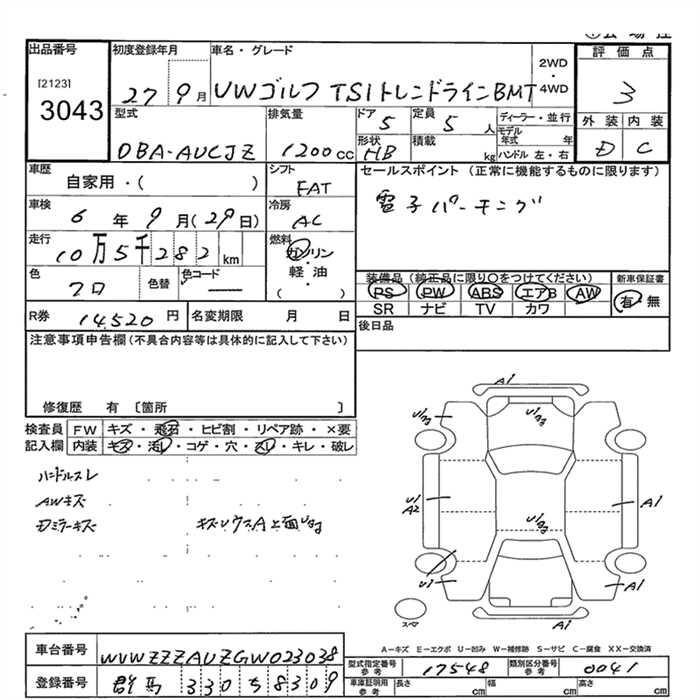 出品番号
[2123]
3043
初度登録年月
27年9月
車名・グレード
VWゴルフ TSIトレンドラインBMT
2WD
・
4WD
評価点
3
外装 内装
D C
型式
DBA-AUCJZ
排気量
1200cc
ドア
5
定員
5人
形状
HB
積載
kg
ディーラー・並行
モデル年式 年
ハンドル 左・右
車歴
自家用・( )
シフト
FAT
車検
6年9月(29日)
冷房
AC
走行
10万5千282km
燃料
ガソリン
軽・油
( )
色
クロ
色替
色コード
R券 14,520円
名変期限 月 日
セールスポイント(正常に機能するものに限ります)
電子パーキング
装備品(純正品に限り○をつけてください)
PS PW ABS エアB AW
SR ナビ TV カワ
新車保証書
有・無
後日品
注意事項申告欄(不具合内容等は具体的に記入して下さい)
修復歴 有 〔箇所 〕
検査員記入欄
FW キズ・飛石・ヒビ割・リペア跡・×要
内装 キズ・汚レ・コゲ・穴・スレ・キレ・破レ
ハンドルスレ
AWキズ
Dミラーキズ
A1
A1
A1
A1
U1
A2
スペア
A-キズ E-エクボ U-凹み W-補修跡 S-サビ C-腐食 XX-交換済
車台番号
WVWZZZAUZGW023038
登録番号
群馬 330 ち 8309
型式指定番号
参考
17548
類別区分番号
参考
0041
車庫証明用
参考
長さ cm
幅 cm
高さ cm